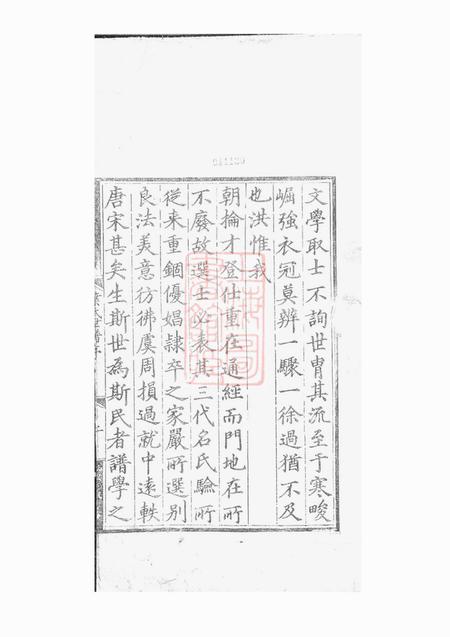 文學取士不詢世胄其流至于寒畯
崛強衣冠莫辨一驟一徐過猶不及
也洪惟我
朝掄才登仕重在通經而門地在所
不廢故選士必表其三代名氏驗所
從来重錮優娼隷卒之家嚴所選别
良法美意彷彿虞周損過就中遠軼
唐宋甚矣生斯世為斯民者譜學之